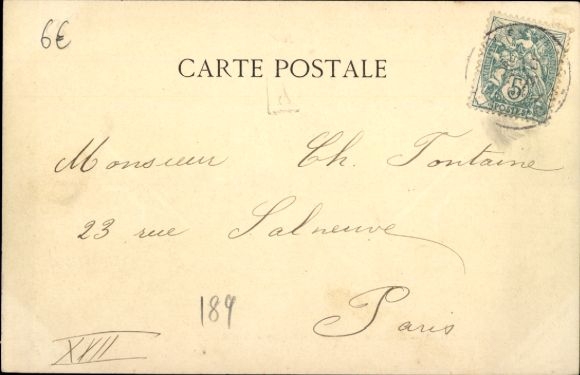 6€
CARTE POSTALE
5
POSTES
Monsieur Ch. Fontaine
23 rue Salneuve
Paris
189
XVII